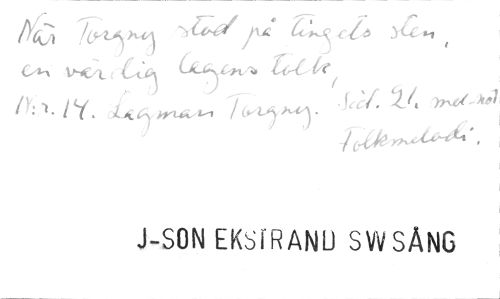 När Torgny stod på tingets sten,
en värdig lagens tolk,
N:r. 14. Lagman Torgny. Sid. 21. med not
Folkmelodi.
J-SON EKSTRAND SW SÅNG